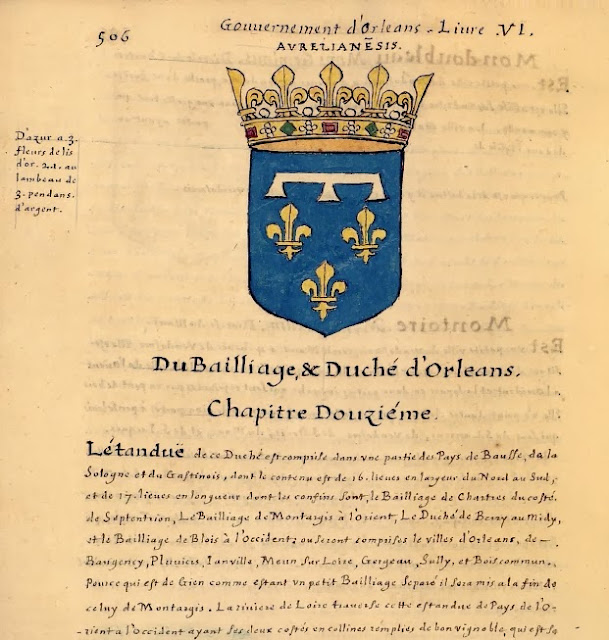 506
Gouuernement d'Orleans. Liure .VI.
AVRELIANĒSIS.
D'azur a 3.
fleurs de lis
d'or. 2. 1. au
lambeau de
3. pendans.
d'argent.
Du Bailliage, & Duché d'Orleans.
Chapitre Douziéme.
Létanduë de ce Duché est comprise dans vne partie des Pays de Bausse, de la
Sologne et du Gastinois, dont le contenu est de 16. lieues en largeur du Nord au Sud,
et de 17. lieues en longueur dont les confins sont, le Bailliage de Chartres du costé.
de Septentrion, Le Bailliage de Montargis à l'Orient, Le Duché de Berry au Midy,
et le Bailliage de Blois à l'Occident; ou seront comprises le villes d'Orleans, de —
Baugency, Pluuicis, Ianville, Meun sur Loire, Gergeau, Sully, et Boiscommun.
Pource qui est de Gien comme estant vn petit Bailliage separé il sera mis a la fin de
celuy de Montargis. La riuiere de Loire trauerse cette estandue de Pays de l'O-
rient a l'Occident ayant ses deux costés en collines remplies de bon vignoble, qui est sa
Mondoubleau
Est
Montoire
Est